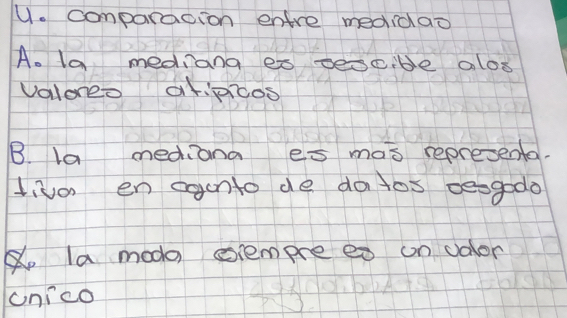 4. comparacion entre medidas
A. la mediana es sescible alos
valores atipicos
B. la mediana es mas representa-
tiva en cgunto de datos sesgado
la moda siempre es un valor
unico